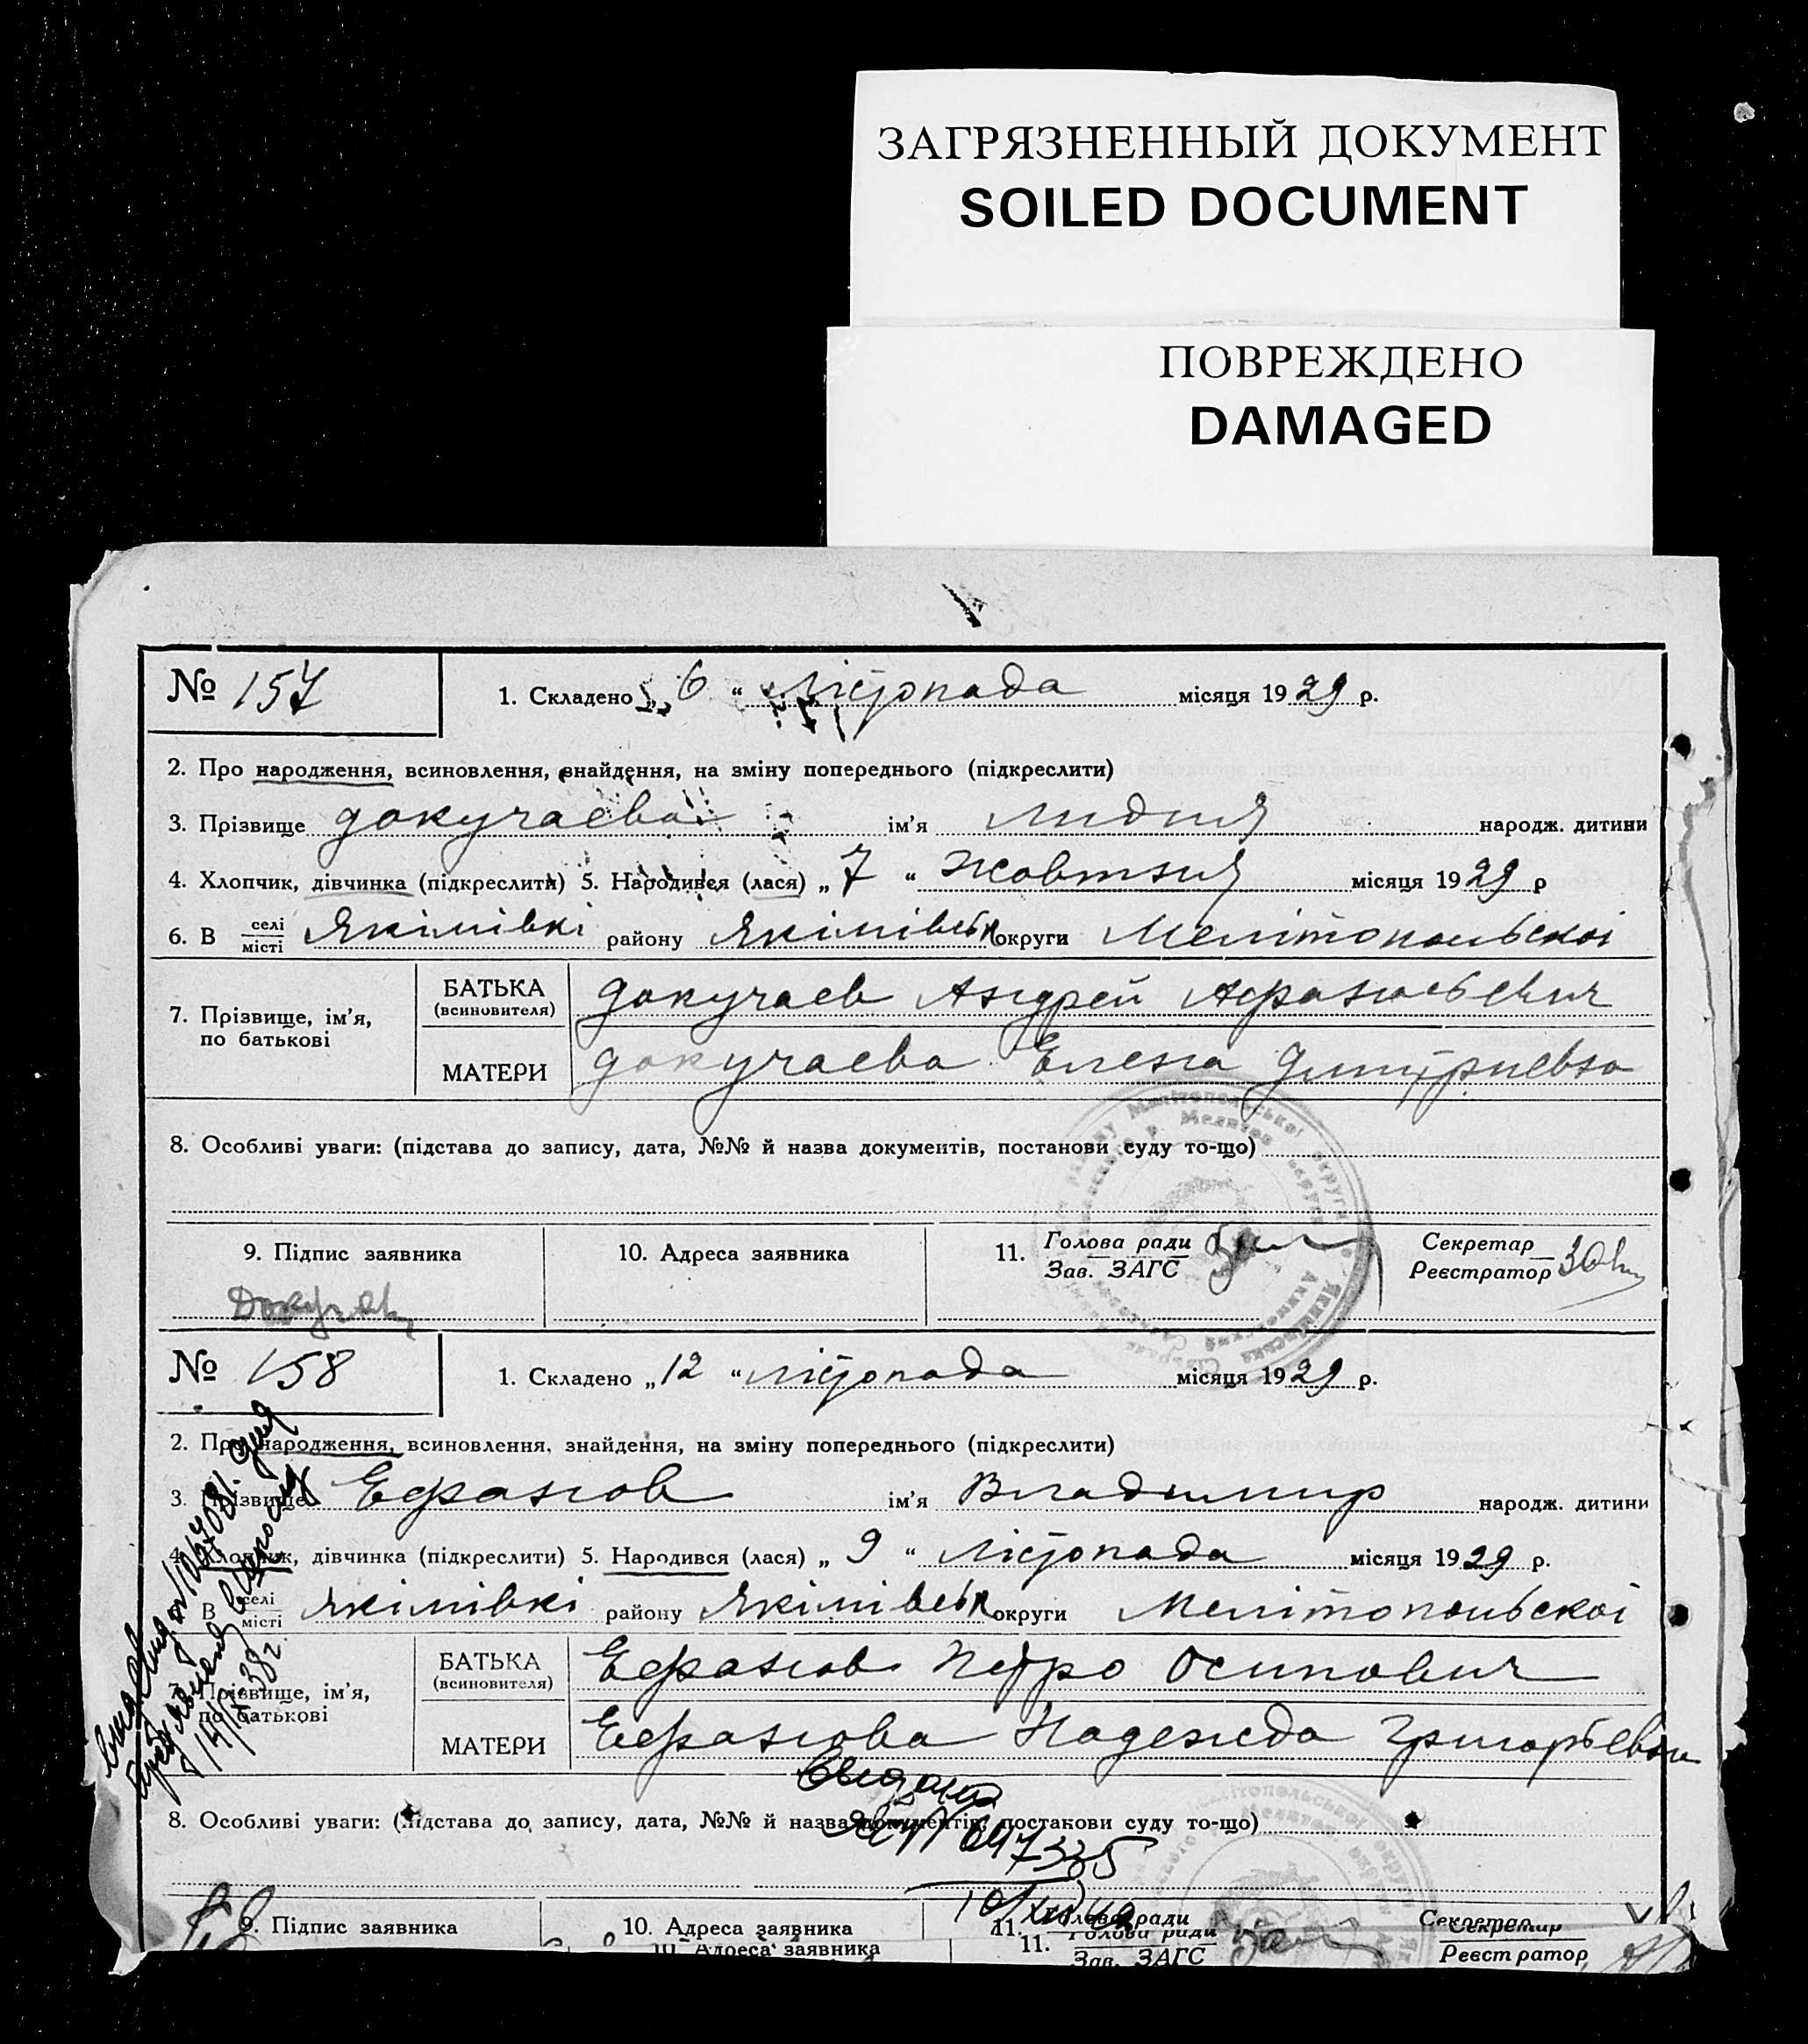 ЗАГРЯЗНЕННЫЙ ДОКУМЕНТ
SOILED DOCUMENT
ПОВРЕЖДЕНО
DAMAGED
№ 157
1. Складено „6“ Лістопада місяця 1929 р.
2. Про народження, всиновлення, знайдення, на зміну попереднього (підкреслити)
3. Прізвище Докучаева ім'я Лидия народж. дитини
4. Хлопчик, дівчинка (підкреслити) 5. Народився (лася) „7“ Жовтня місяця 1929 р
6. В селі місті Якімівкі району Якімівськ округи Мелітопольскоі
7. Прізвище, ім'я, по батькові
БАТЬКА (всиновителя) Докучаев Андрей Афанасьевич
МАТЕРИ Докучаева Елена Дмитриевна
8. Особливі уваги: (підстава до запису, дата, №№ й назва документів, постанови суду то-що)
9. Підпис заявника
10. Адреса заявника
11. Голова ради Зав. ЗАГС
Секретар Реєстратор
Докучаев
№ 158
1. Складено „12“ Лістопада місяця 1929 р.
2. Про народження, всиновлення, знайдення, на зміну попереднього (підкреслити)
3. Прізвище Ефанов ім'я Владимир народж. дитини
4. Хлопчик, дівчинка (підкреслити) 5. Народився (лася) „9“ Лістопада місяця 1929 р.
В селі місті Якімівкі району Якімівськ округи Мелітопольскоі
Прізвище, ім'я, по батькові
БАТЬКА (всиновителя) Ефанов Петро Осипович
МАТЕРИ Ефанова Надежда Григорьевна
8. Особливі уваги: (підстава до запису, дата, №№ й назва документів, постанови суду то-що)
9. Підпис заявника
10. Адреса заявника
11. Голова ради
Секретар
10. Адреса заявника
11. Голова ради
Зав. ЗАГС
Секретар
Реєстратор